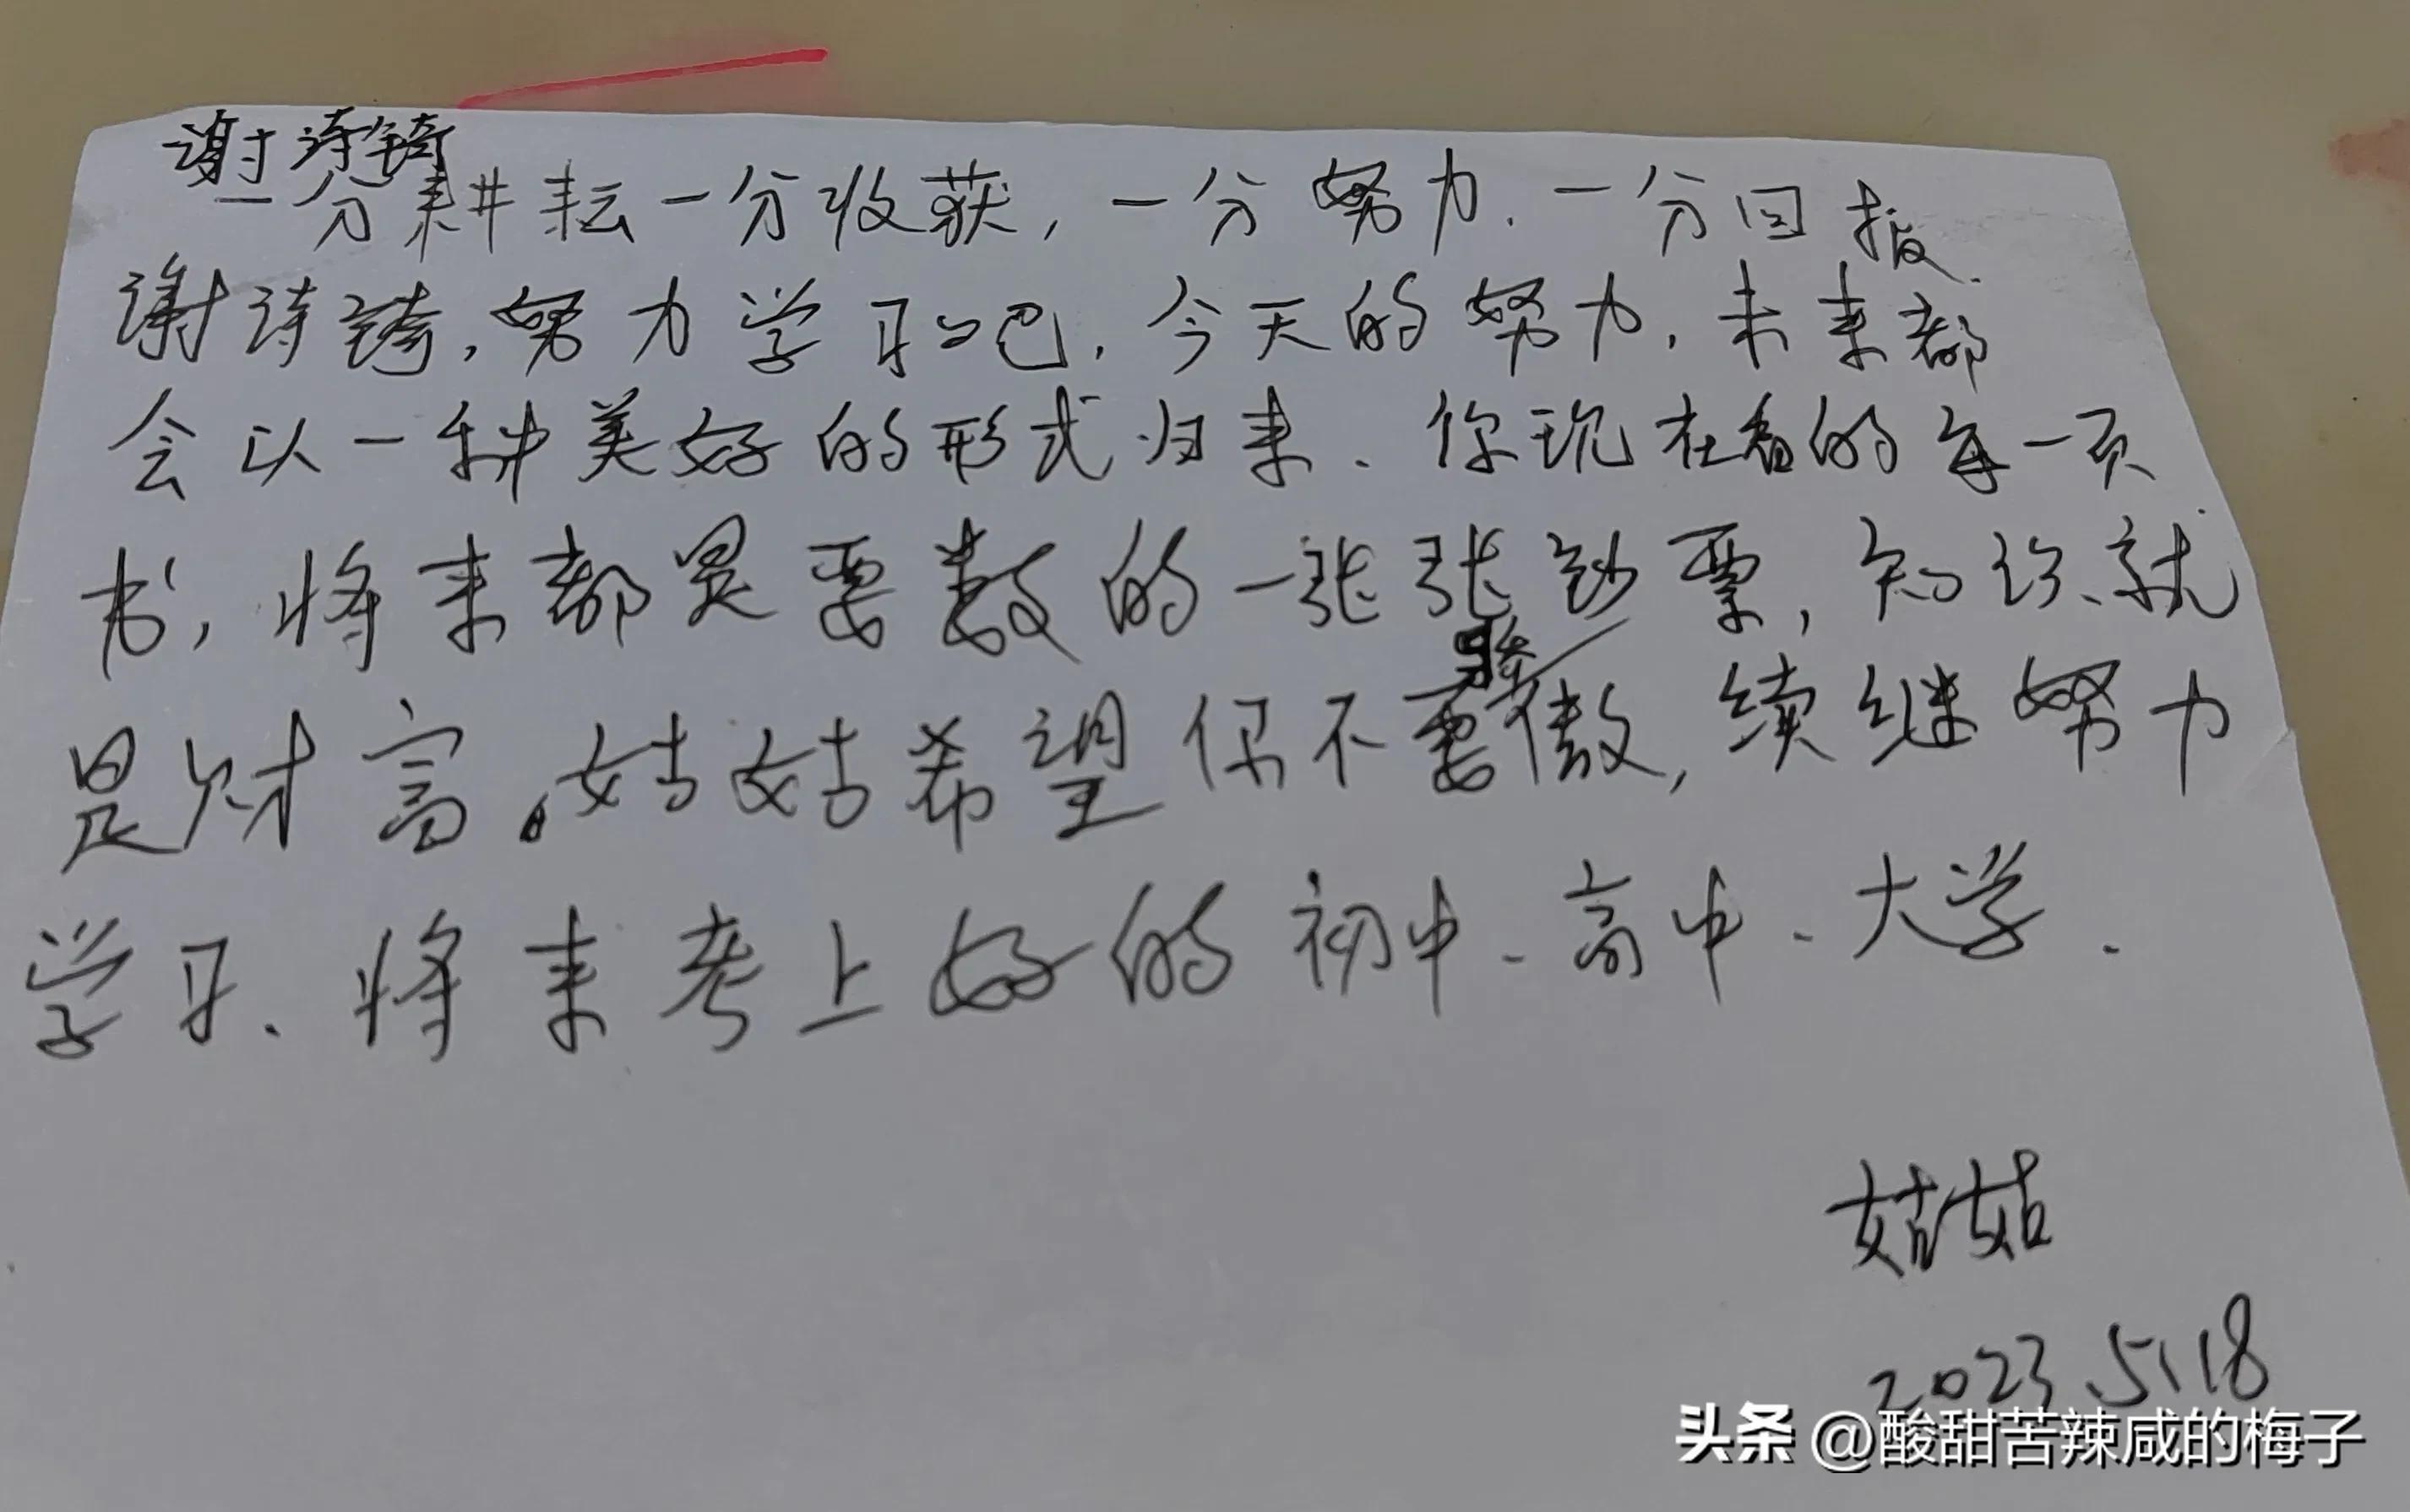 谢诗锜
一分耕耘一分收获,一分努力、一分回报.
谢诗锜,努力学习吧,今天的努力,未来都
会以一种美好的形式归来、你现在看的每一页
书,将来都是要数的一张张钞票,知识就
是财富。姑姑希望你不要骄傲,续继努力
学习、将来考上好的初中、高中、大学.
姑姑
2023.5.18
头条 @酸甜苦辣咸的梅子